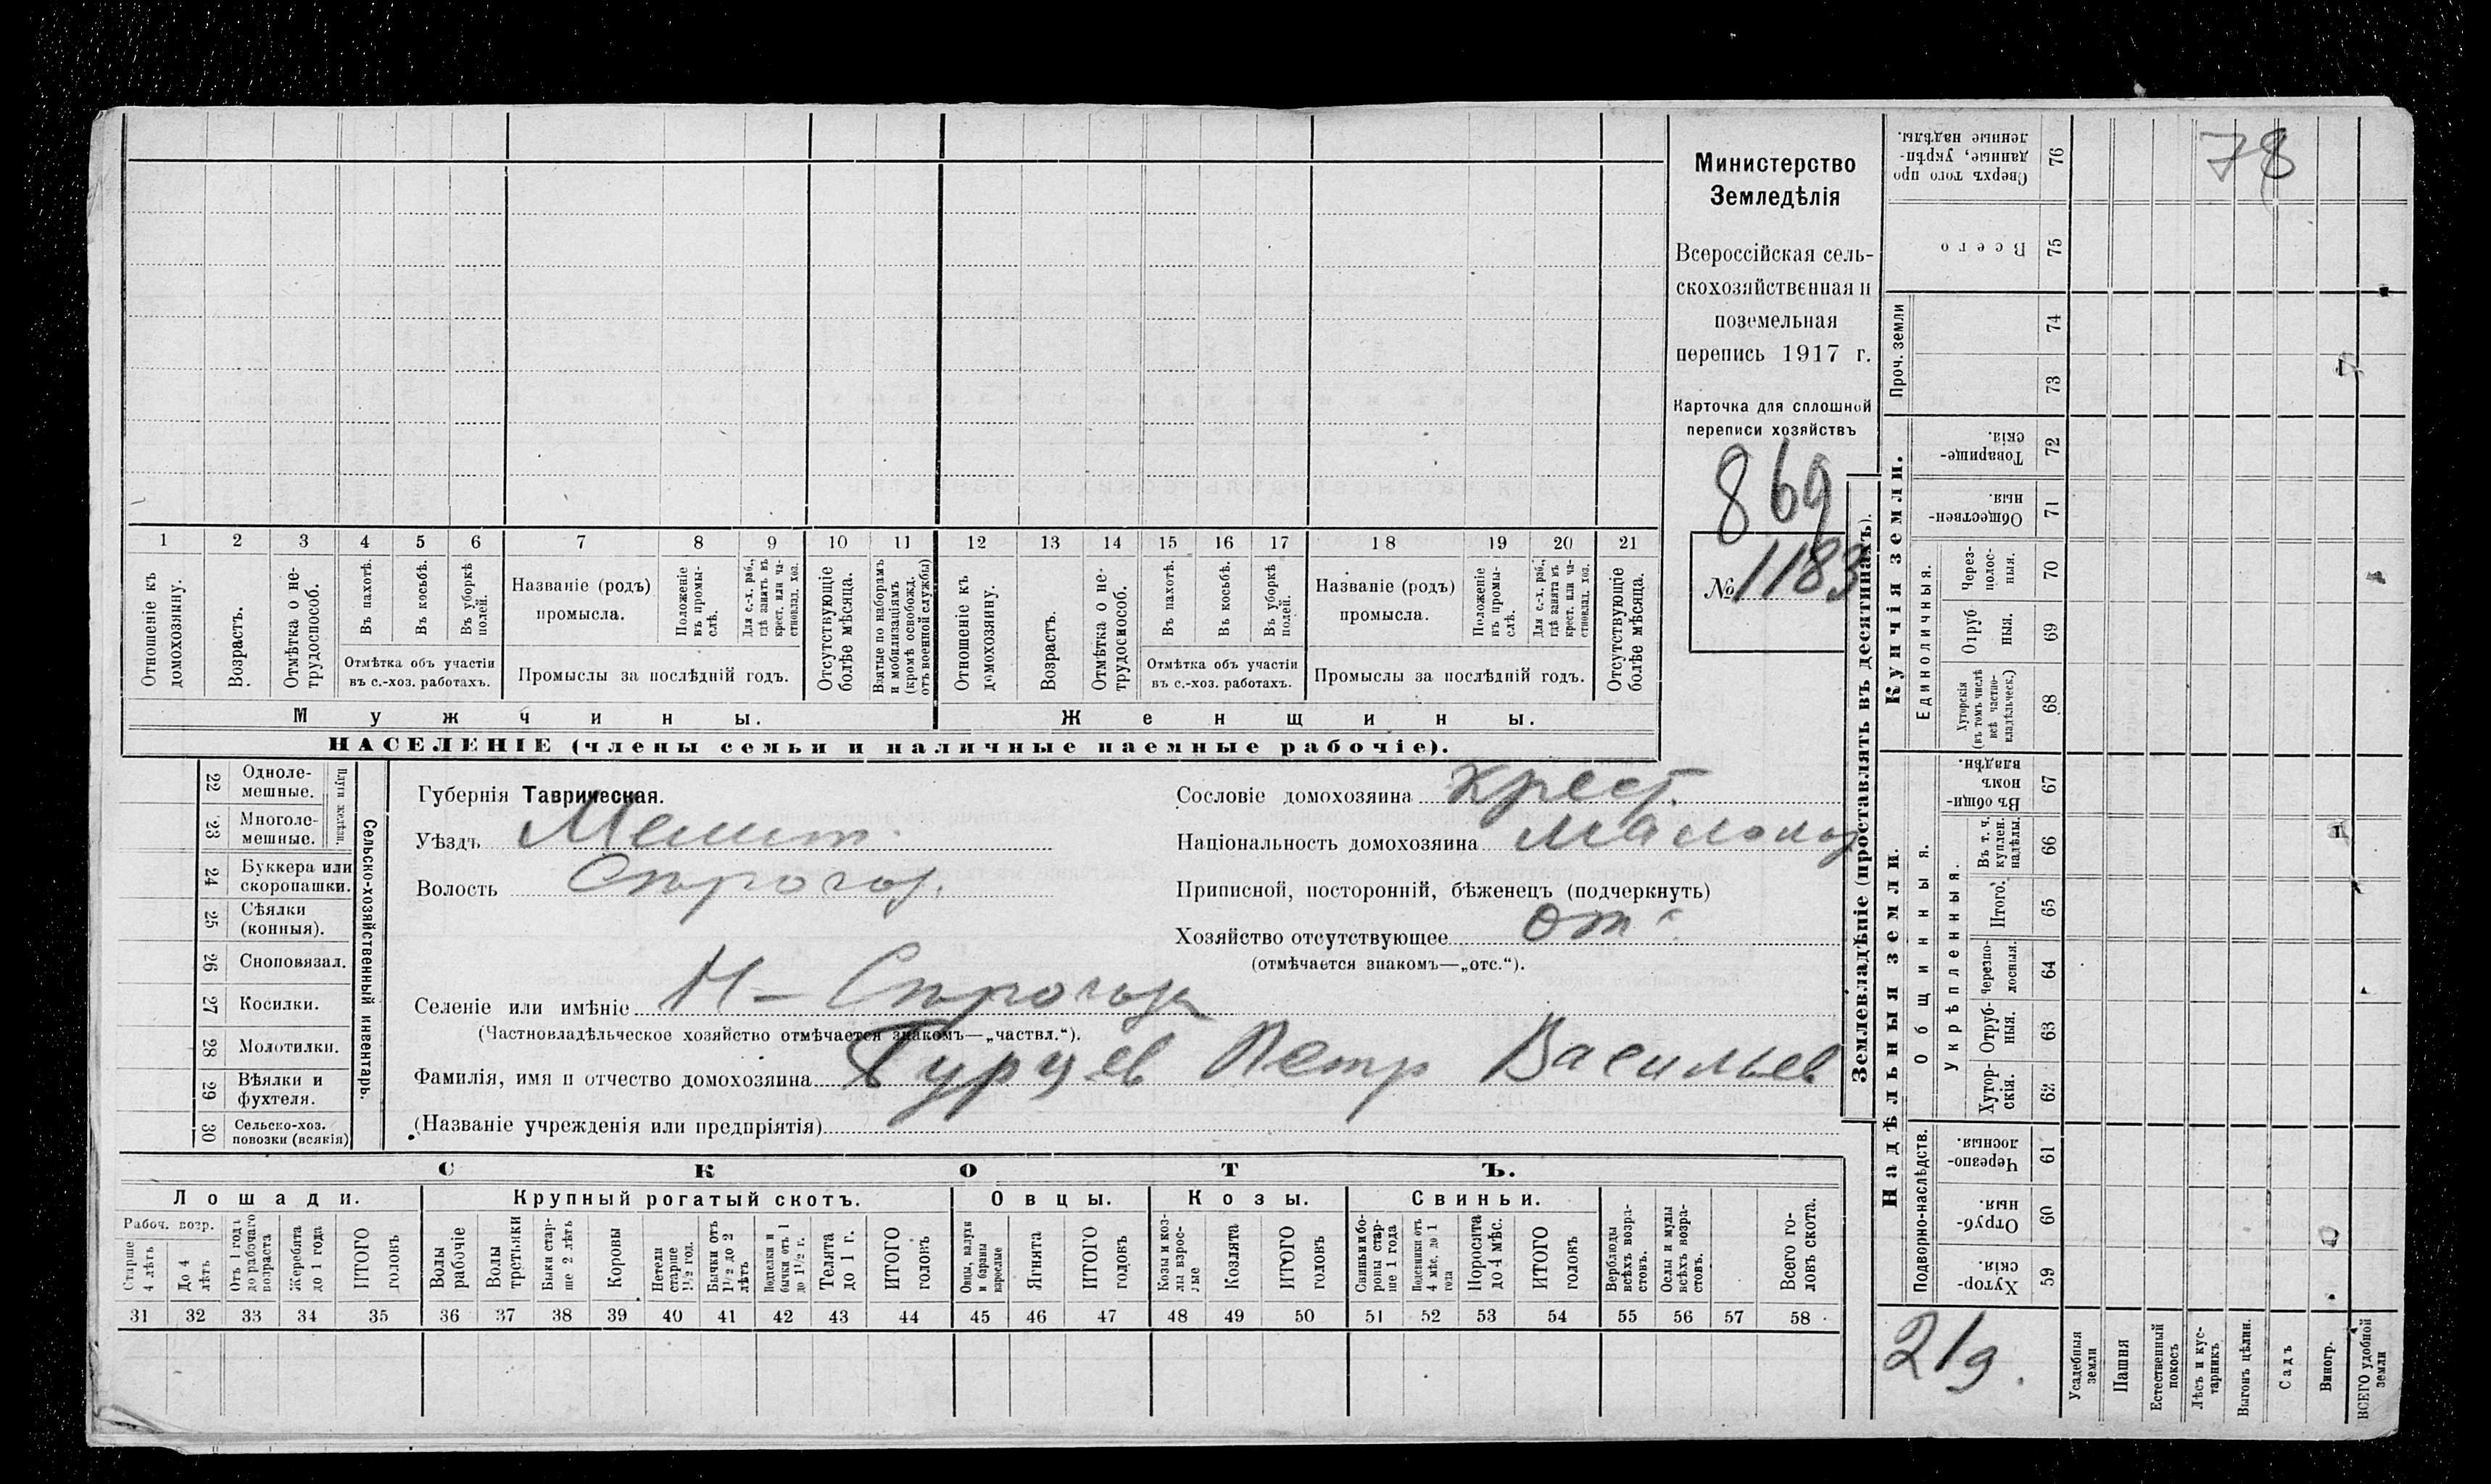 78
Министерство
Земледѣлія
Всероссійская сель-
скохозяйственная и
поземельная
перепись 1917 г.
Карточка для сплошной
переписи хозяйствъ
869
№ 1183
1 2 3 4 5 6 7 8 9 10 11 12 13 14 15 16 17 18 19 20 21
Отношеніе къ домохозяину.
Возрастъ.
Отмѣтка о не-трудоспособ.
Въ пахотѣ.
Въ косьбѣ.
Въ уборкѣ полей.
Отмѣтка объ участіи
въ с.-хоз. работахъ.
Названіе (родъ)
промысла.
Положеніе въ промы-слѣ.
Для с.-х. раб., гдѣ занятъ въ крест. или ча-стновлад. хоз.
Промыслы за послѣдній годъ.
Отсутствующіе болѣе мѣсяца.
Взятые по наборамъ и мобилизаціямъ (кромѣ освобожд. отъ военной службы)
Отношеніе къ домохозяину.
Возрастъ.
Отмѣтка о не-трудоспособ.
Въ пахотѣ.
Въ косьбѣ.
Въ уборкѣ полей.
Отмѣтка объ участіи
въ с.-хоз. работахъ.
Названіе (родъ)
промысла.
Положеніе въ промы-слѣ.
Для с.-х. раб., гдѣ занятъ въ крест. или ча-стновлад. хоз.
Промыслы за послѣдній годъ.
Отсутствующіе болѣе мѣсяца.
Мужчины.
Женщины.
НАСЕЛЕНІЕ (члены семьи и наличные наемные рабочіе).
22 Одноле-мешные.
23 Многоле-мешные.
Плуги желѣзн.
24 Буккера или скоропашки.
25 Сѣялки (конныя).
26 Сноповязал.
27 Косилки.
28 Молотилки.
29 Вѣялки и фухтеля.
30 Сельско-хоз. повозки (всякія)
Сельско-хозяйственный инвентарь.
Губернія Таврическая.
Уѣздъ Мелит.
Волость Сѣрогоз.
Сословіе домохозяина крест.
Національность домохозяина малорос
Приписной, посторонній, бѣженецъ (подчеркнуть)
Хозяйство отсутствующее от.
(отмѣчается знакомъ—„отс.“).
Селеніе или имѣніе Н-Сѣрогозы
(Частновладѣльческое хозяйство отмѣчается знакомъ—„частвл.“).
Фамилія, имя и отчество домохозяина Гурцев Петр Васильев
(Названіе учрежденія или предпріятія)
СКОТЪ.
Лошади.
Крупный рогатый скотъ.
Овцы.
Козы.
Свиньи.
Рабоч. возр.
Старше 4 лѣтъ
До 4 лѣтъ
Отъ 1 года до рабочаго возраста
Жеребята до 1 года
ИТОГО головъ
Волы рабочіе
Волы третьяки
Быки стар-ше 2 лѣтъ
Коровы
Нетели старше 1½ год.
Бычки отъ 1½ до 2 лѣтъ
Подтелки и бычки отъ 1 до 1½ г.
Телята до 1 г.
ИТОГО головъ
Овцы, валухи и бараны взрослые
Ягнята
ИТОГО головъ
Козы и коз-лы взрос-лые
Козлята
ИТОГО головъ
Свиньи и бо-ровы стар-ше 1 года
Подсвинки отъ 4 мѣс. до 1 года
Поросята до 4 мѣс.
ИТОГО головъ
Верблюды всѣхъ возра-стовъ.
Ослы и мулы всѣхъ возра-стовъ.
Всего го-ловъ скота.
31 32 33 34 35 36 37 38 39 40 41 42 43 44 45 46 47 48 49 50 51 52 53 54 55 56 57 58
Землевладѣніе (проставлять въ десятинахъ).
Купчія земли.
Надѣльныя земли.
Сверхъ того про-данные, укрѣп-ленные надѣлы. 76
Всего 75
Проч. земли
74
73
Товарище-скія. 72
Обществен-ныя. 71
Единоличныя.
Через-полос-ныя. 70
Отруб-ныя. 69
Хуторскія (въ томъ числѣ всѣ частно-владѣльческ.) 68
Общинныя.
Въ общи-номъ владѣн. 67
Укрѣпленныя.
Въ т. ч. куплен. надѣлы. 66
Итого. 65
Черезпо-лосныя. 64
Отруб-ныя. 63
Хутор-скія. 62
Подворно-наслѣдств.
Черезпо-лосныя. 61
Отруб-ныя. 60
Хутор-скія. 59
21д.
Усадебныя земли
Пашня
Естественный покосъ
Лѣсъ и кус-тарникъ
Выгонъ цѣлин.
Садъ
Виногр.
ВСЕГО удобной земли